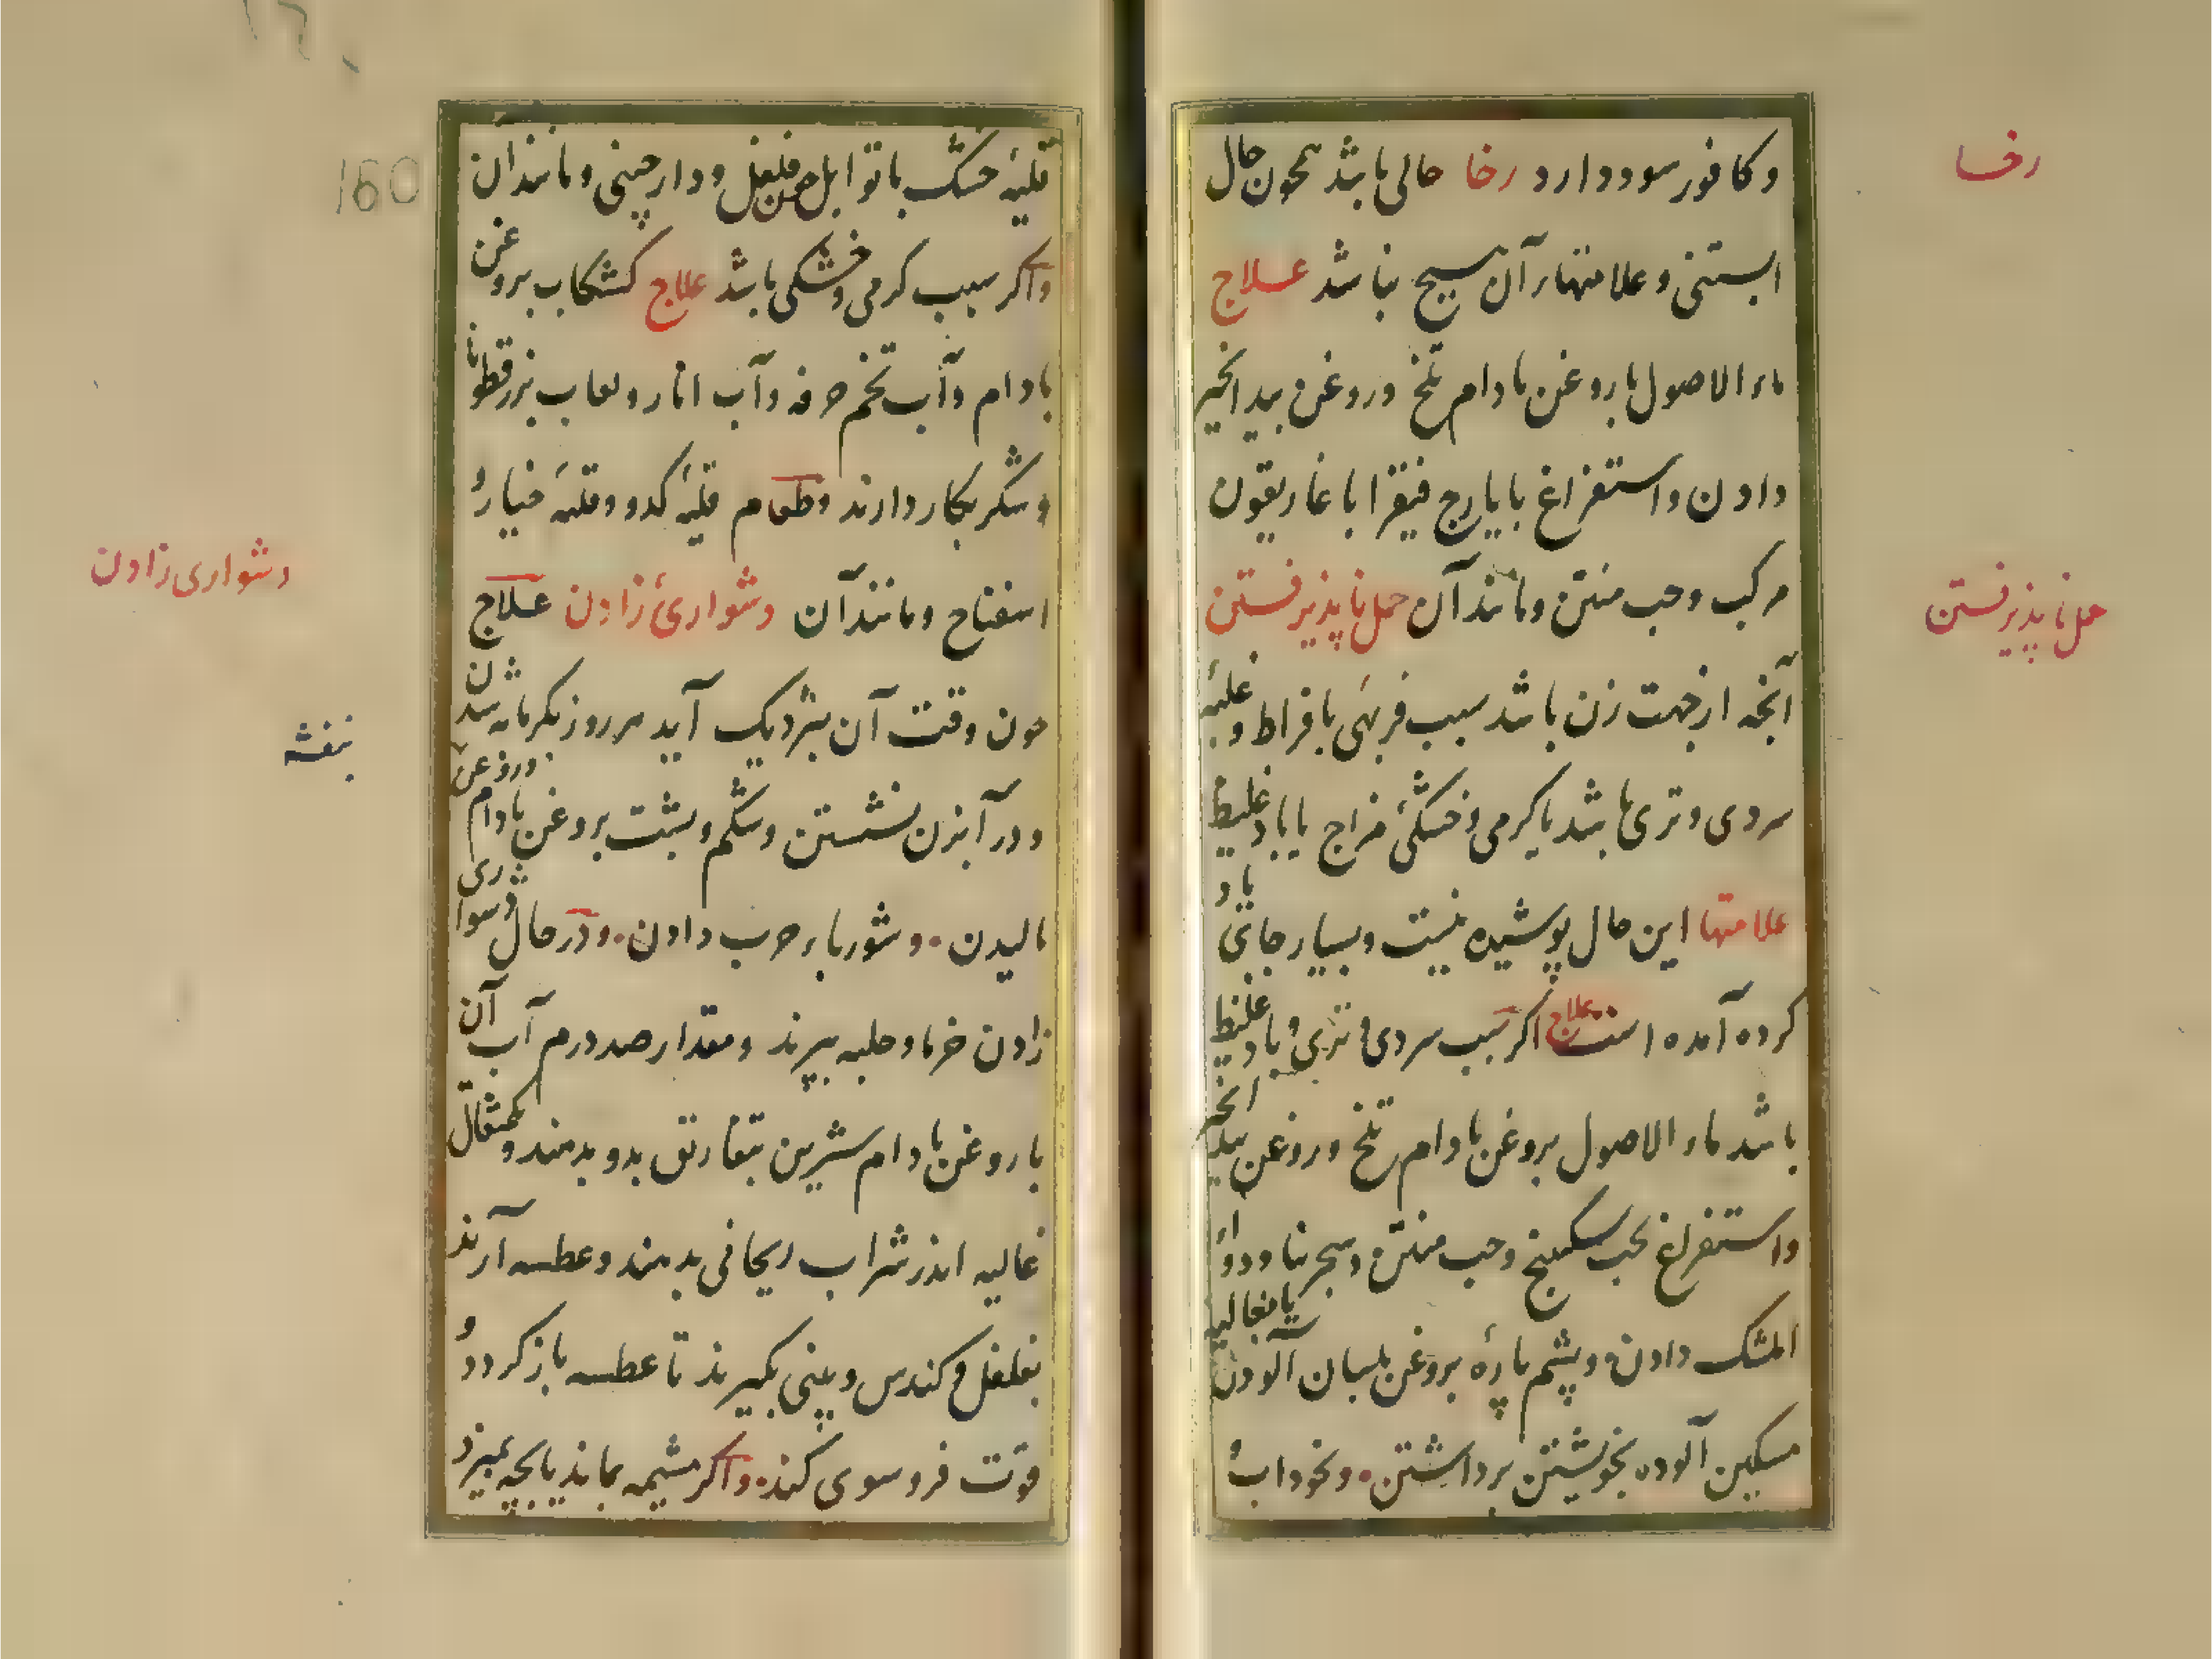 رخا
و کافور سود دارد رخا حالی باشد همچون حال
ابستنی و علامتهاء آن هیچ نباشد علاج
ماء الاصول با روغن بادام تلخ و روغن بید انجیر
دادن و استفراغ بایارج فیقرا با غاریقون
مرکب و حب منتن و مانند آن حمل نا پذیرفستن
حمل نا پذیرفستن
آنچه از جهت زن باشد سبب فربهی بافراط و غلبهٔ
سردی و تری باشد یا کرمی و خشکی مزاج یا باد غلیظ
علامتها این حال پوشیده نیست و بسیار جای یاد
کرده آمده است علاج اکر سبب سردی و تری و باد غلیظ
باشد ماء الاصول بروغن بادام تلخ و روغن بید انجیر
و استفراغ بحب سکبینج و حب منتن و سجرنیا و دواء
المشک دادن و پشم پارهٔ بروغن بلسان آلودن یا بغالیه
مسکین آلوده بخویشتن برداشتن و نخوداب
160
قلیهٔ خشک با توابل چون فلفل و دارچینی و مانند آن
و اکر سبب کرمی و خشکی باشد علاج کشکاب بروغن
بادام و آب تخم خرفه و آب انار و لعاب بزرقطونا
و شکر بکار دارند و طعام قلیهٔ کدو و قلیهٔ خیار و
اسفناخ و مانند آن دشواریٔ زادن علاج
دشواری زادن
چون وقت آن نزدیک آید هر روز بکرمابه شدن
بنفشه
و در آبزن نشستن و شکم و پشت بروغن بادام و روغن
مالیدن و شورباء چرب دادن و در حال دشواری
زادن خرما و حلبه بپزند و مقدار صد درم آب آن
با روغن بادام شیرین بتفاریق بدو بدهند و یکمثقال
غالیه اندر شراب ریحانی بدهند و عطسه آرند
بفلفل و کندس و بینی بکیرند تا عطسه باز کردد و
قوت فرو سوی کند و اکر مشیمه بماند یا بچه بمیرد